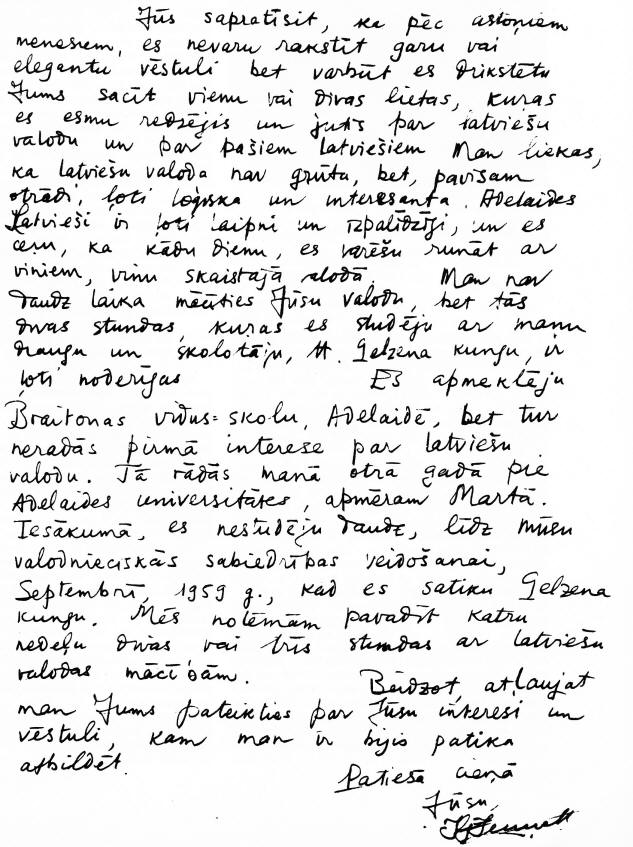 Jūs sapratīsit, ka pēc astoņiem
menesiem, es nevaru rakstīt garu vai
elegantu vēstuli bet varbūt es drīkstētu
Jums sacīt vienu vai divas lietas, kuras
es esmu redzējis un jutis par latviešu
valodu un par pašiem latviešiem Man liekas,
ka latviešu valoda nav grūta, bet, pavisam
otrādi, ļoti loģiska un interesanta. Adelaides
Latvieši ir ļoti laipni un izpalīdzīgi, un es
ceru, ka kādu dienu, es varēšu runāt ar
viņiem, viņu skaistajā alodā. Man nav
daudz laika mācīties Jūsu valodu, bet tās
divas stundas, kuras es studēju ar manu
draugu un skolotāju, H. Gelzena kungu, ir
ļoti noderīgas Es apmeklēju
Braitonas vidus-skolu, Adelaidē, bet tur
neradās pirmā interese par latviešu
valodu. Tā rādās manā otrā gadā pie
Adelaides universitātes, apmēram Martā.
Iesākumā, es nestudēju daudz, līdz mūsu
valodnieciskās sabiedrības veidošanai,
Septembrī, 1959 g., kad es satiku Gelzena
kungu. Mēs nolēmām pavadīt katru
nedeļu divas vai trīs stundas ar latviešu
valodas mācīšām.
Beidzot, atļaujat
man Jums pateikties par Jūsu interesi un
vēstuli, kam man ir bijis patika
atbildēt.
Patiesa cieņā
Jūsu,